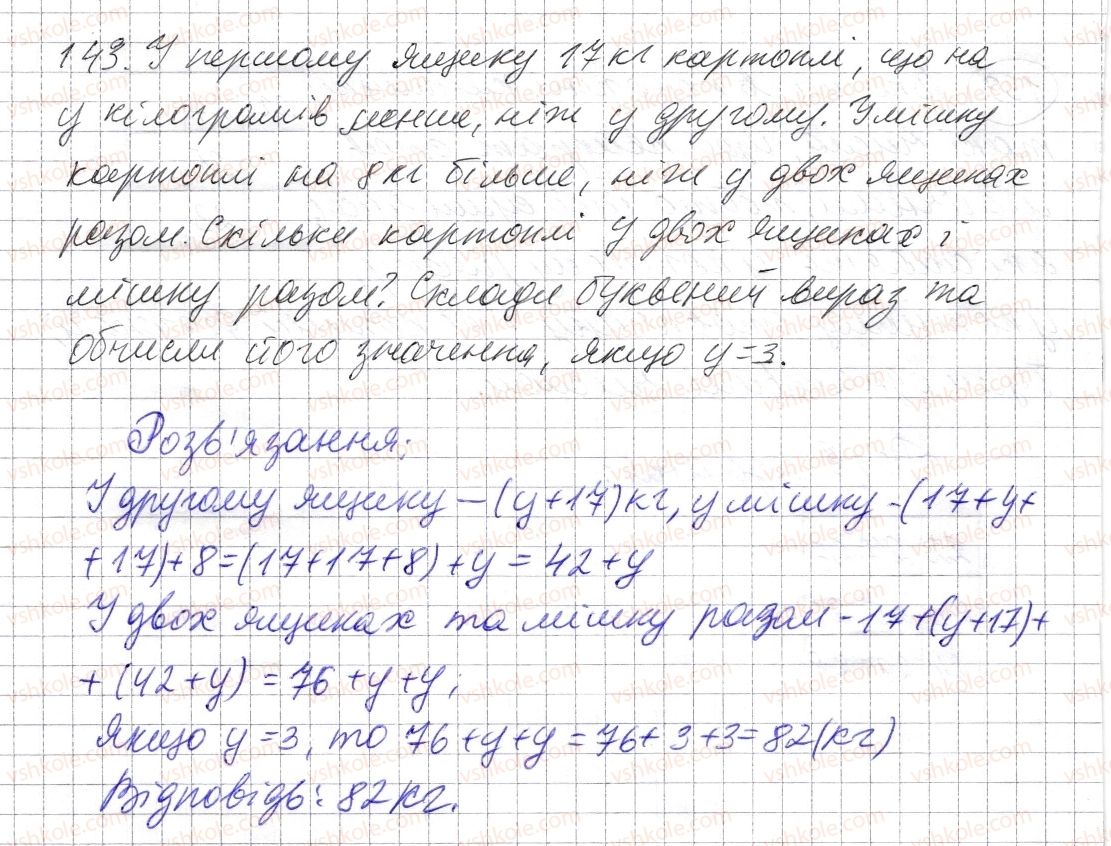 143. У першому ящику 17 кг картоплі, що на
у кілограмів менше, ніж у другому. У мішку
картоплі на 8 кг більше, ніж у двох ящиках
разом. Скільки картоплі у двох ящиках і
мішку разом? Склади буквений вираз та
обчисли його значення, якщо y=3.
Розв'язання:
У другому ящику – (y+17) кг, у мішку - (17+y+
+17)+8=(17+17+8)+y = 42+y
У двох ящиках та мішку разом - 17+(y+17)+
+(42+y) = 76+y+y;
Якщо y=3, то 76+y+y=76+3+3=82(кг)
Відповідь: 82 кг.